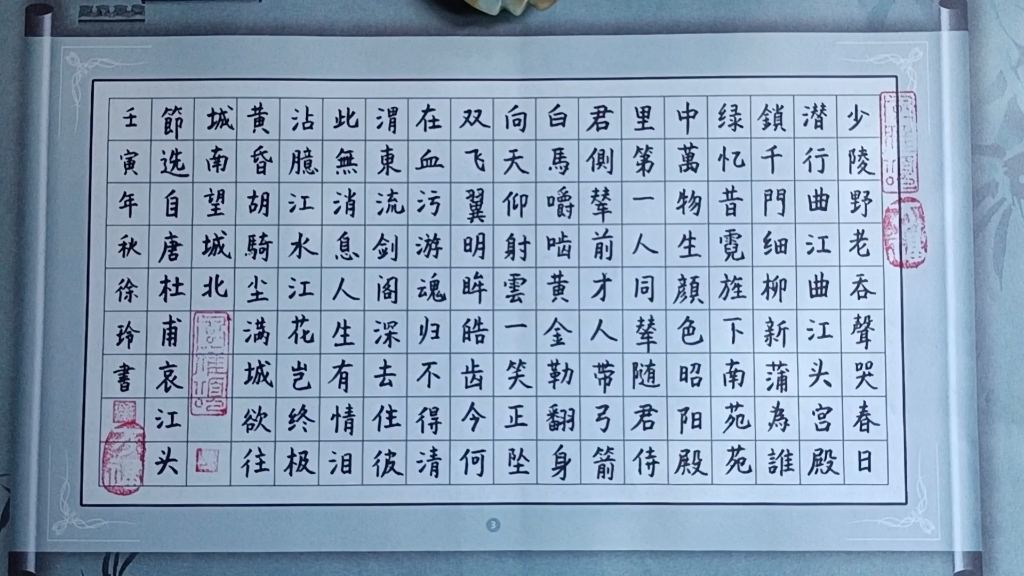 少陵野老吞聲哭春日
潜行曲江曲江头宫殿
鎖千門细柳新蒲為誰
绿忆昔霓旌下南苑苑
中萬物生顔色昭阳殿
里第一人同輦随君侍
君側輦前才人带弓箭
白馬嚼啮黄金勒翻身
向天仰射雲一笑正坠
双飞翼明眸皓齿今何
在血污游魂归不得清
渭東流剑阁深去住彼
此無消息人生有情泪
沾臆江水江花岂终极
黄昏胡騎尘满城欲往
城南望城北
節选自唐杜甫哀江头
壬寅年秋徐玲書
3